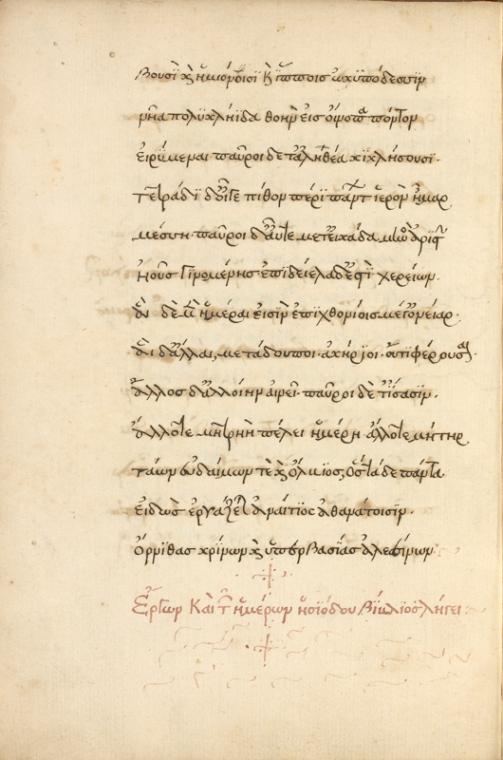 Βουσὶ καὶ ἡμιόνοισι καὶ ἵπποις ὠκυπόδεσσιν
νῆα πολυκλήϊδα θοὴν εἰς οἴνοπα πόντον
εἰρύμεναι παῦροι δέ τ' ἀληθέα κικλήσκουσι.
τετράδι δ' οἶγε πίθον περὶ πάντων ἱερὸν ἦμαρ
μέσση. παῦροι δ' αὖτε μετ' εἰκάδα μηνὸς ἀρίστην
ἠοῦς γινομένης ἐπὶ δείελα δ' ἐστὶ χερείων.
αἱ δὲ μὲν ἡμέραι εἰσὶν ἐπιχθονίοις μέγ' ὄνειαρ.
αἱ δ' ἄλλαι, μετάδουποι ἀκήριοι. οὔτι φέρουσαι.
ἄλλος δ' ἀλλοίην αἰνεῖ. παῦροι δέ τ' ἴσασιν.
ἄλλοτε μητρυιὴ πέλει ἡμέρη ἄλλοτε μήτηρ
τάων εὐδαίμων τε καὶ ὄλβιος, ὃς τάδε πάντα
εἰδὼς ἐργάζεται ἀναίτιος ἀθανάτοισιν.
ὄρνιθας κρίνων καὶ ὑπερβασίας ἀλεείνων
Ἔργων Καὶ τῶν ἡμέρων ἡσιόδου Βίβλιος λήγει: